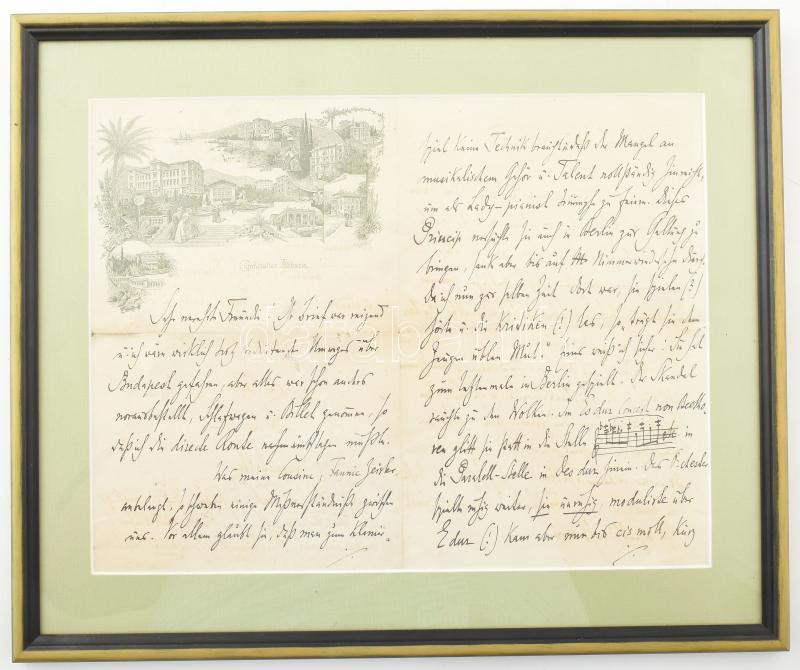 Curhôtelier Abbazia
Sehr verehrte Freunde! Ihr Brief war reizend
u. ich wäre wirklich trotz Umweges über
Budapest gefahren, aber alles war schon anders
vorausbestellt, Schlafwagen u. Billet genommen, so
daß ich die directe Route nachmittags mußte.
Was meine Cousine, Fannie Zeisler
anbelangt, so schweben einige Mißverständnisse zwischen
uns. Vor allem glaubt sie, daß man zum Klavier-
spiel keine Technik braucht u. daß der Mangel an
musikalischem Gehör u. Talent vollständig hinreicht,
um als Lady-pianist Triumphe zu feiern. Dieses
Princip versuchte sie auch in Berlin zur Geltung zu
bringen, sank aber bis auf Nimmerwiedersehn durch.
Da ich nun zur selben Zeit dort war, sie spielen (?)
hörte u. die Kritiken (?) las, so trägt sie dem
Zeugen üblen Mut. Eins weiß ich sicher: Sie hat
zum letztenmale in Berlin gespielt. Der Skandal
rauchte zu den Wolken. Im Es dur Concert von Beetho-
ven glitt sie statt in die Stelle etc in
die Parallel-Stelle in Des dur hinein. Das Orchester
spielte ruhig weiter, sie unruhig, modulirte über
E dur (?) kam aber nur bis cis moll, kurz